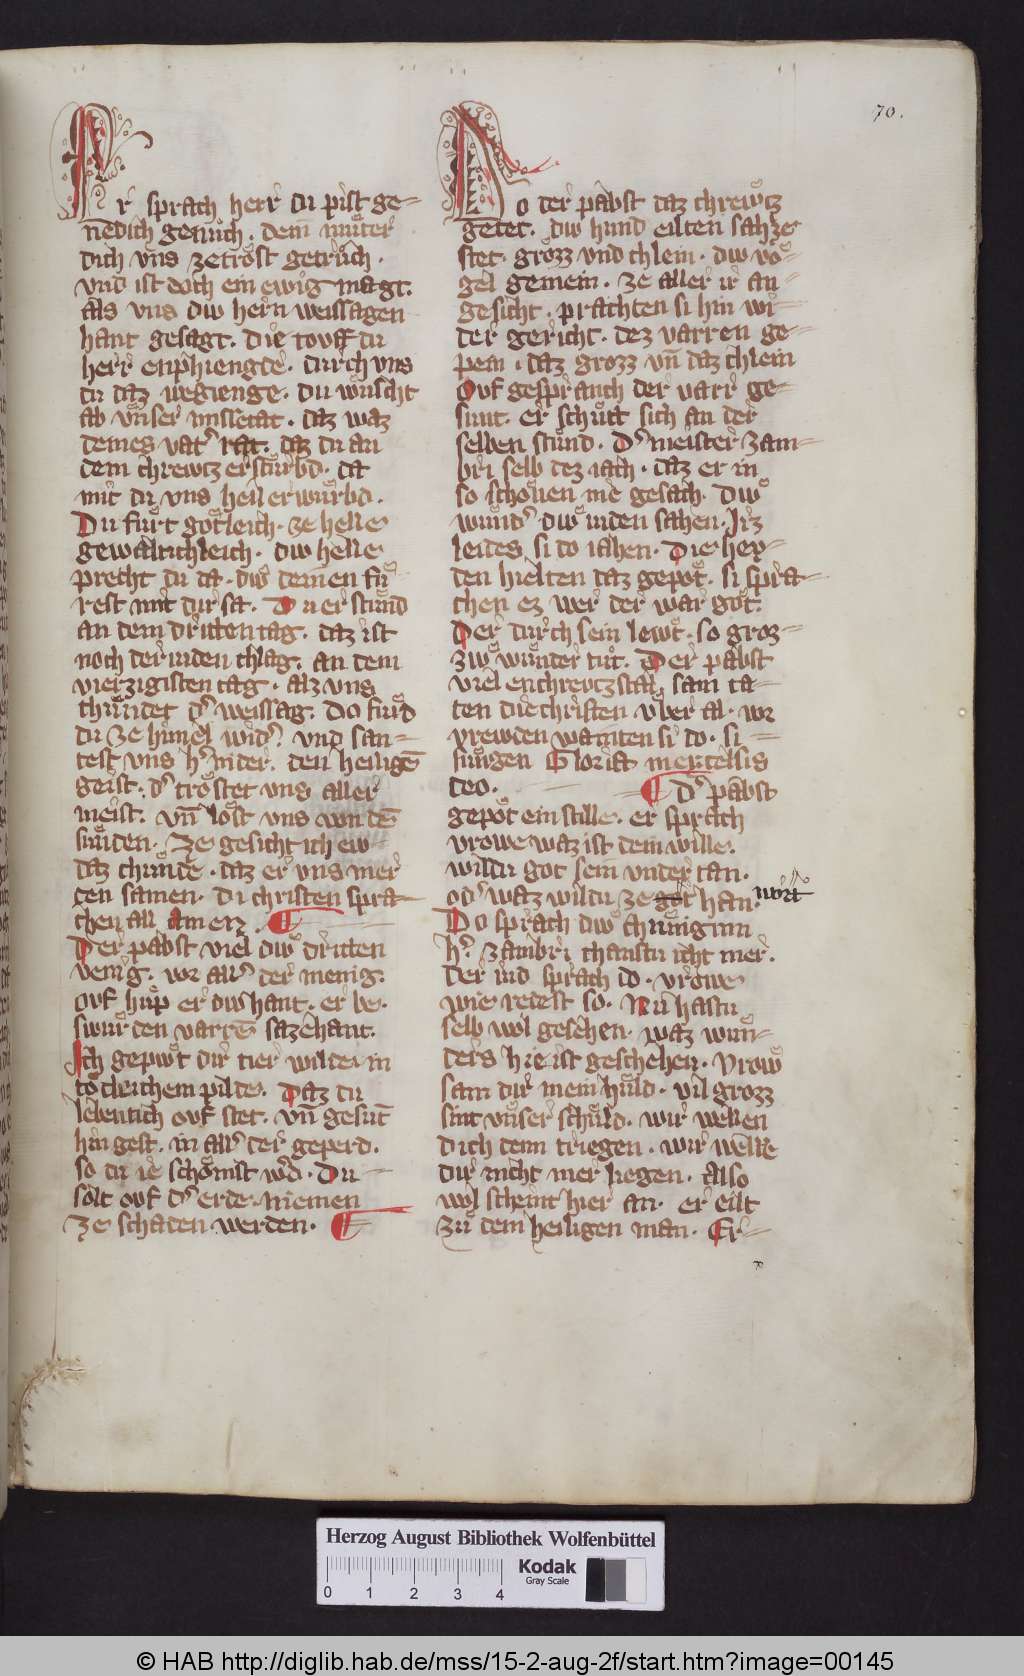 70.
Er sprach herr du pist ge-
nēdich genůch. dein můter
dich vns ze trost getrůch.
vnd ist doch ein ewig magt.
als vns diw hern weissagen
hant gesagt. die touff du
herr enphiengde. durch vns
du daz wegienge. du wůscht
ab vnser missetat. daz waz
deines vat͛ rat. daz du an
dem chrewtz ersturbd. da
mit du vns heil erwurbd.
Du fůrt gotleich. ze helle
gewaltichleich. diw helle
precht du da. diw deinen fů
rest mit dir sa. Du erstůnd
an dem dritten tag. daz ist
noch der iuden chlag. an dem
vierzigisten tag. alz vns
chůndet d͛ weissag. Do fůrd
du ze himel wid͛. vnd san-
test vns h͛ nider. den heiligē
geist. d͛ trostet vns aller
meist. vn̄ lost vns von dē
sunden. Ze gesicht ich ew
daz chunde. daz er vns mer
ten samen. di christen spra-
chen all Amen
Der pabst viel diw dritten
venig. vor all͛ der menig.
ouf hůp er diw hant. er be-
swůr den varrē sazehant.
Ich gepiwt dir tier wilder in
tocleichem pilde. Daz du
lebentich ouf stet. vn̄ gesūt
hin gest. in all͛ der geperd.
so du ie schonist w͛d. Du
solt ouf d͛ erde. niemen
ze schaden werden.
Do der pabst daz chrewtz
getet. diw hund eilten sah ze
stet. grozz vnd chlein. diw vo-
gel gemein. ze aller ir an-
gesicht. prachten si hin wi-
der gericht. dez varren ge-
pein. daz grozz vn̄ daz chlein
Ouf gesprauch der varr ge-
sunt. er schutt sich an der
selben stund. D͛ meister zam-
bri selb dez iach. daz er in
so schonen nie gesach. Diw
wund͛ diw iuden sahen. Irz
leides si do iahen. Die hey-
den hielten daz gepot. si spra-
chen ez wer der war got.
Der durch sein lewt. so groz-
ziw wunder tůt. Der pabst
viel en chrewtz stal sam ta-
ten die christen vber al. vor
vrewden wainten si do. si
sungen Gloria in excelsis
deo.
D͛ pabst
gepot ein stille. er sprach
vrowe waz ist dein wille.
wildu got sein vndertan.
od͛ waz wildu ze got han. wort
Do sprach diw chuniginn
h͛ zambri chanstu icht mer.
Der iud sprach io. vrowe
wie redest so. Nu hastu
selb wol gesehen. waz wun-
ders hie ist geschehen. Vrow
sam dir mein huld. vil grozz
sint vnser schuld. wir wellen
dich denn triegen. wir welle
dir nicht mer liegen. Also
wol scheint hier an. er eilt
zu dem heiligen man. Er-
Herzog August Bibliothek Wolfenbüttel
Kodak
Gray Scale
0 1 2 3 4
© HAB http://diglib.hab.de/mss/15-2-aug-2f/start.htm?image=00145